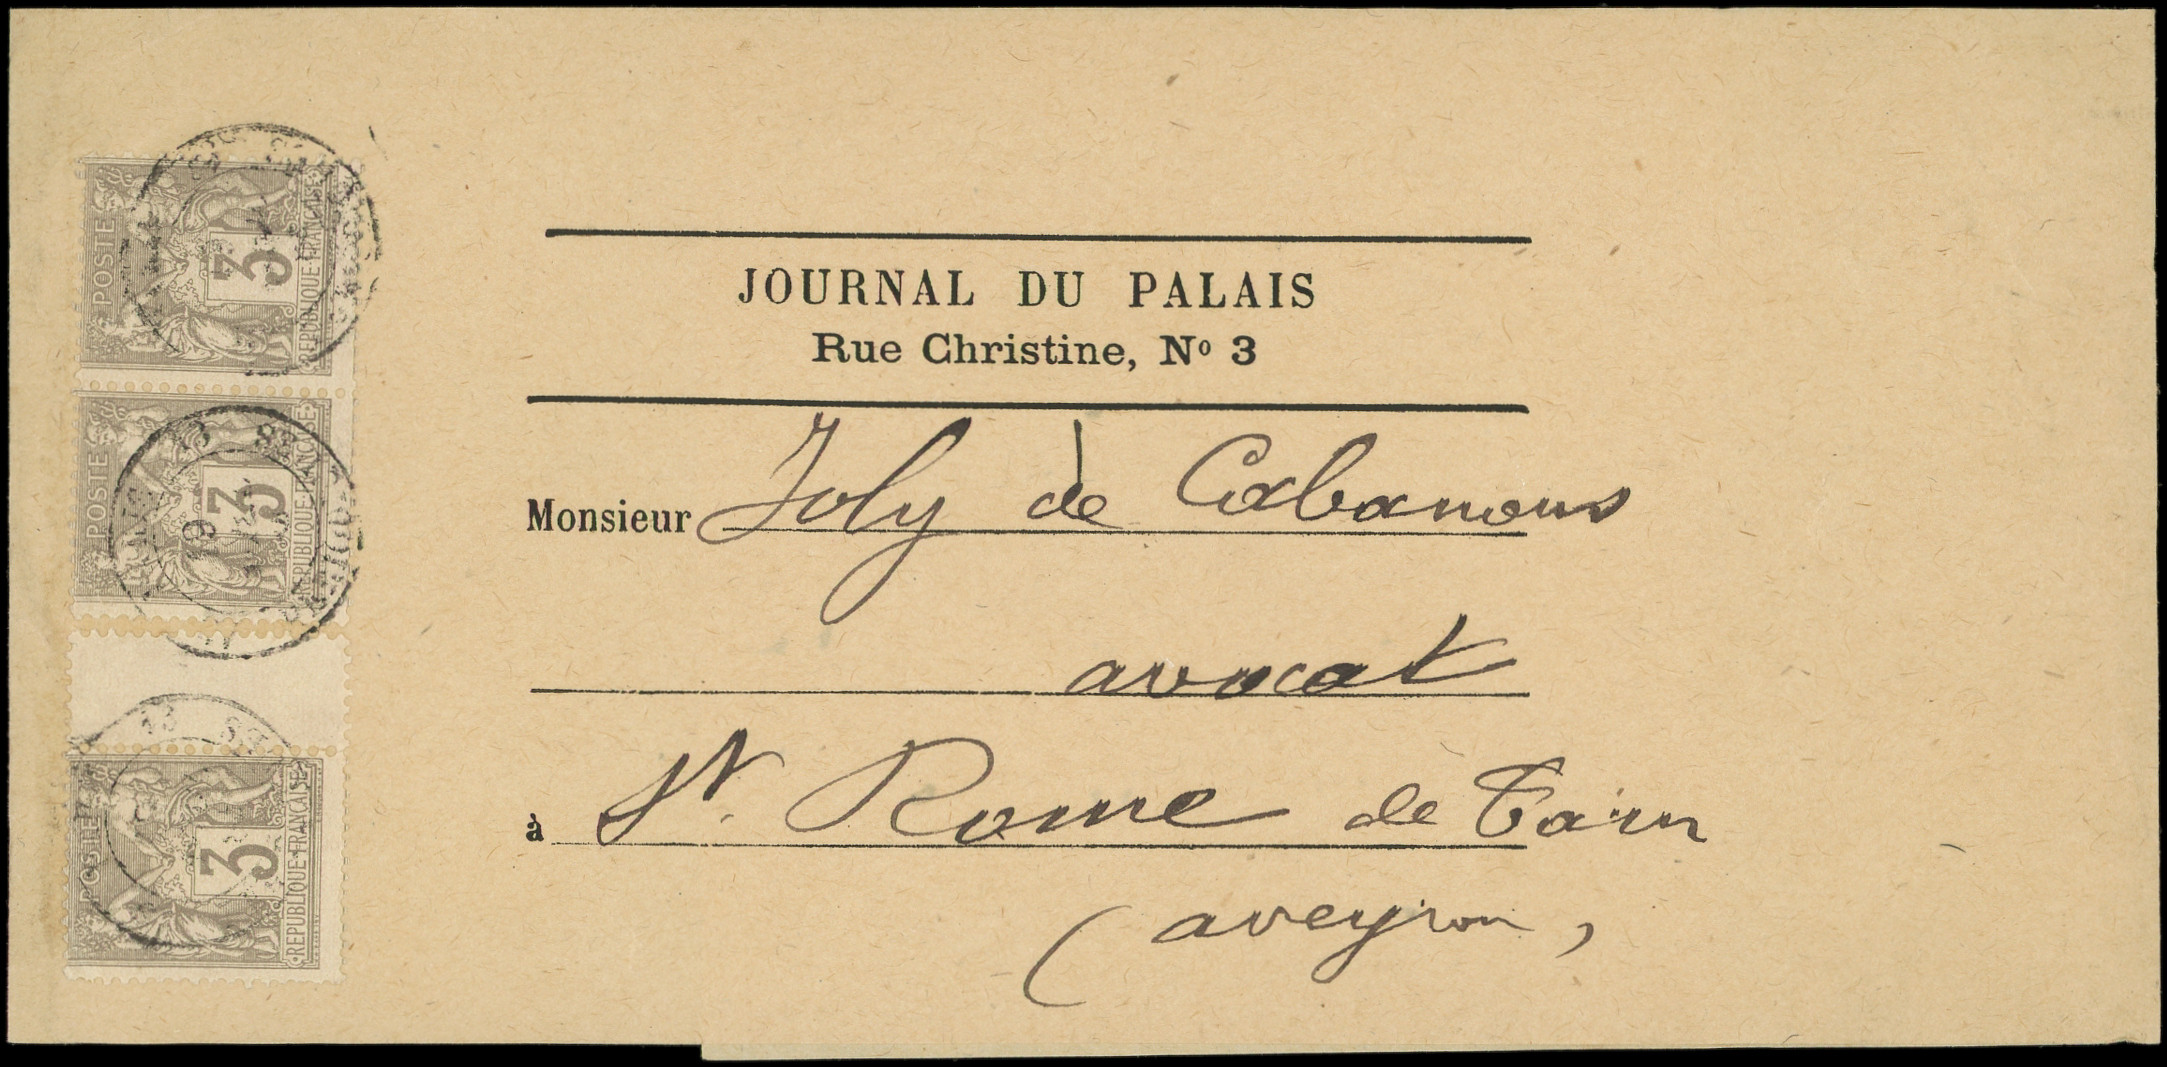 JOURNAL DU PALAIS
Rue Christine, Nº 3
Monsieur Joly de Cabanous
avocat
à St. Rome de Tarn
(aveyron)
POSTE
3
REPUBLIQUE FRANÇAISE
POSTE
3
REPUBLIQUE FRANÇAISE
POSTE
3
REPUBLIQUE FRANÇAISE